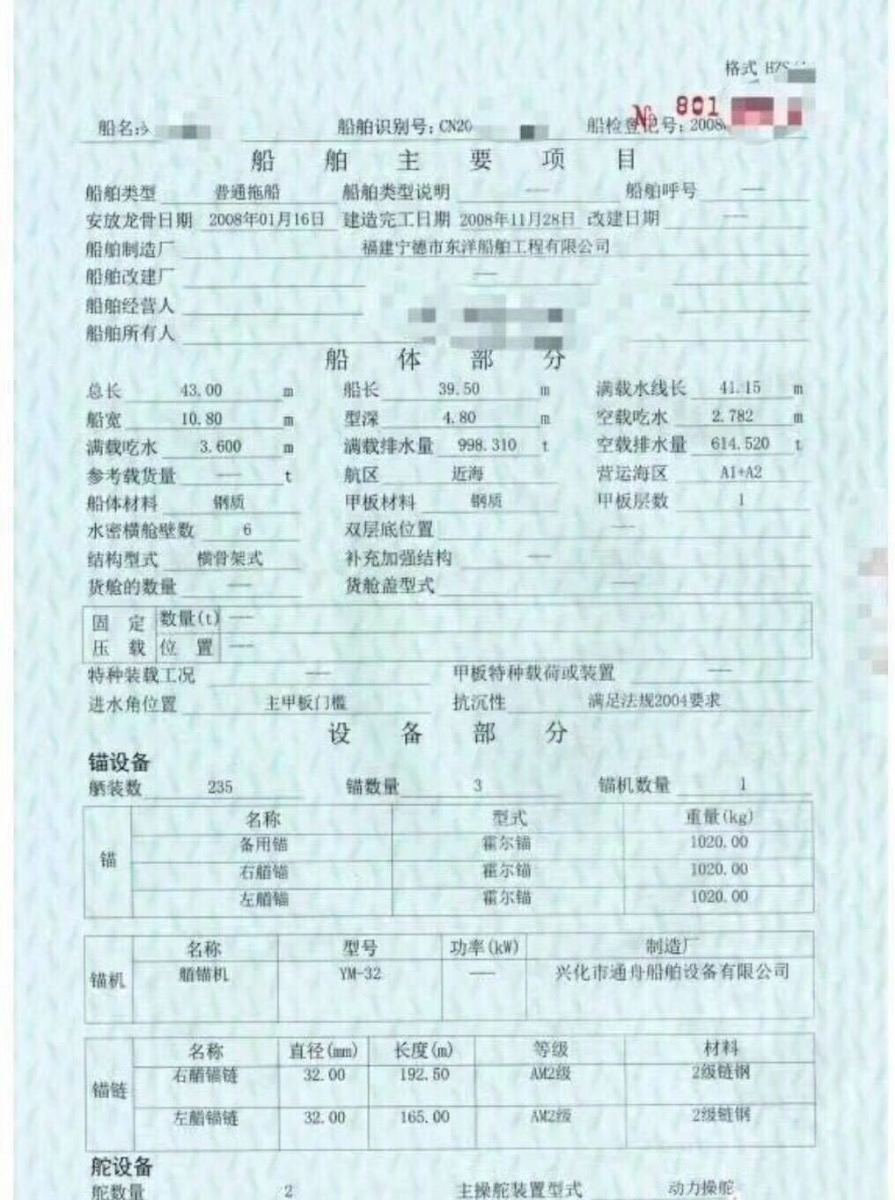 格式 HZS
№ 801
船名: 船舶识别号: CN20 船检登记号: 2008
船舶主要项目
船舶类型 普通拖船 船舶类型说明 —— 船舶呼号 ——
安放龙骨日期 2008年01月16日 建造完工日期 2008年11月28日 改建日期 ——
船舶制造厂 福建宁德市东洋船舶工程有限公司
船舶改建厂 ——
船舶经营人
船舶所有人
船体部分
总长 43.00 m 船长 39.50 m 满载水线长 41.15 m
船宽 10.80 m 型深 4.80 m 空载吃水 2.782 m
满载吃水 3.600 m 满载排水量 998.310 t 空载排水量 614.520 t
参考载货量 —— t 航区 近海 营运海区 A1+A2
船体材料 钢质 甲板材料 钢质 甲板层数 1
水密横舱壁数 6 双层底位置 ——
结构型式 横骨架式 补充加强结构 ——
货舱的数量 —— 货舱盖型式 ——
固定 数量(t) ——
压载 位置 ——
特种装载工况 —— 甲板特种载荷或装置 ——
进水角位置 主甲板门槛 抗沉性 满足法规2004要求
设备部分
锚设备
舾装数 235 锚数量 3 锚机数量 1
名称 型式 重量(kg)
备用锚 霍尔锚 1020.00
锚 右艏锚 霍尔锚 1020.00
左艏锚 霍尔锚 1020.00
名称 型号 功率(kW) 制造厂
锚机 艏锚机 YM-32 —— 兴化市通舟船舶设备有限公司
名称 直径(mm) 长度(m) 等级 材料
右艏锚链 32.00 192.50 AM2级 2级链钢
锚链
左艏锚链 32.00 165.00 AM2级 2级链钢
舵设备
舵数量 2 主操舵装置型式 动力操舵